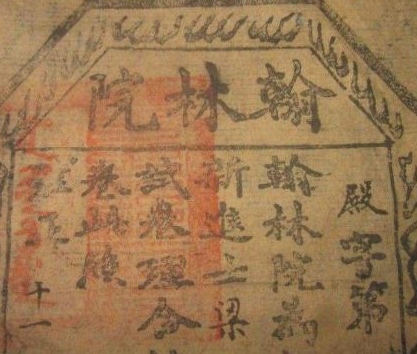 翰林院
殿字第
翰林院为
新進士梁
試卷理合
卷此照
十一